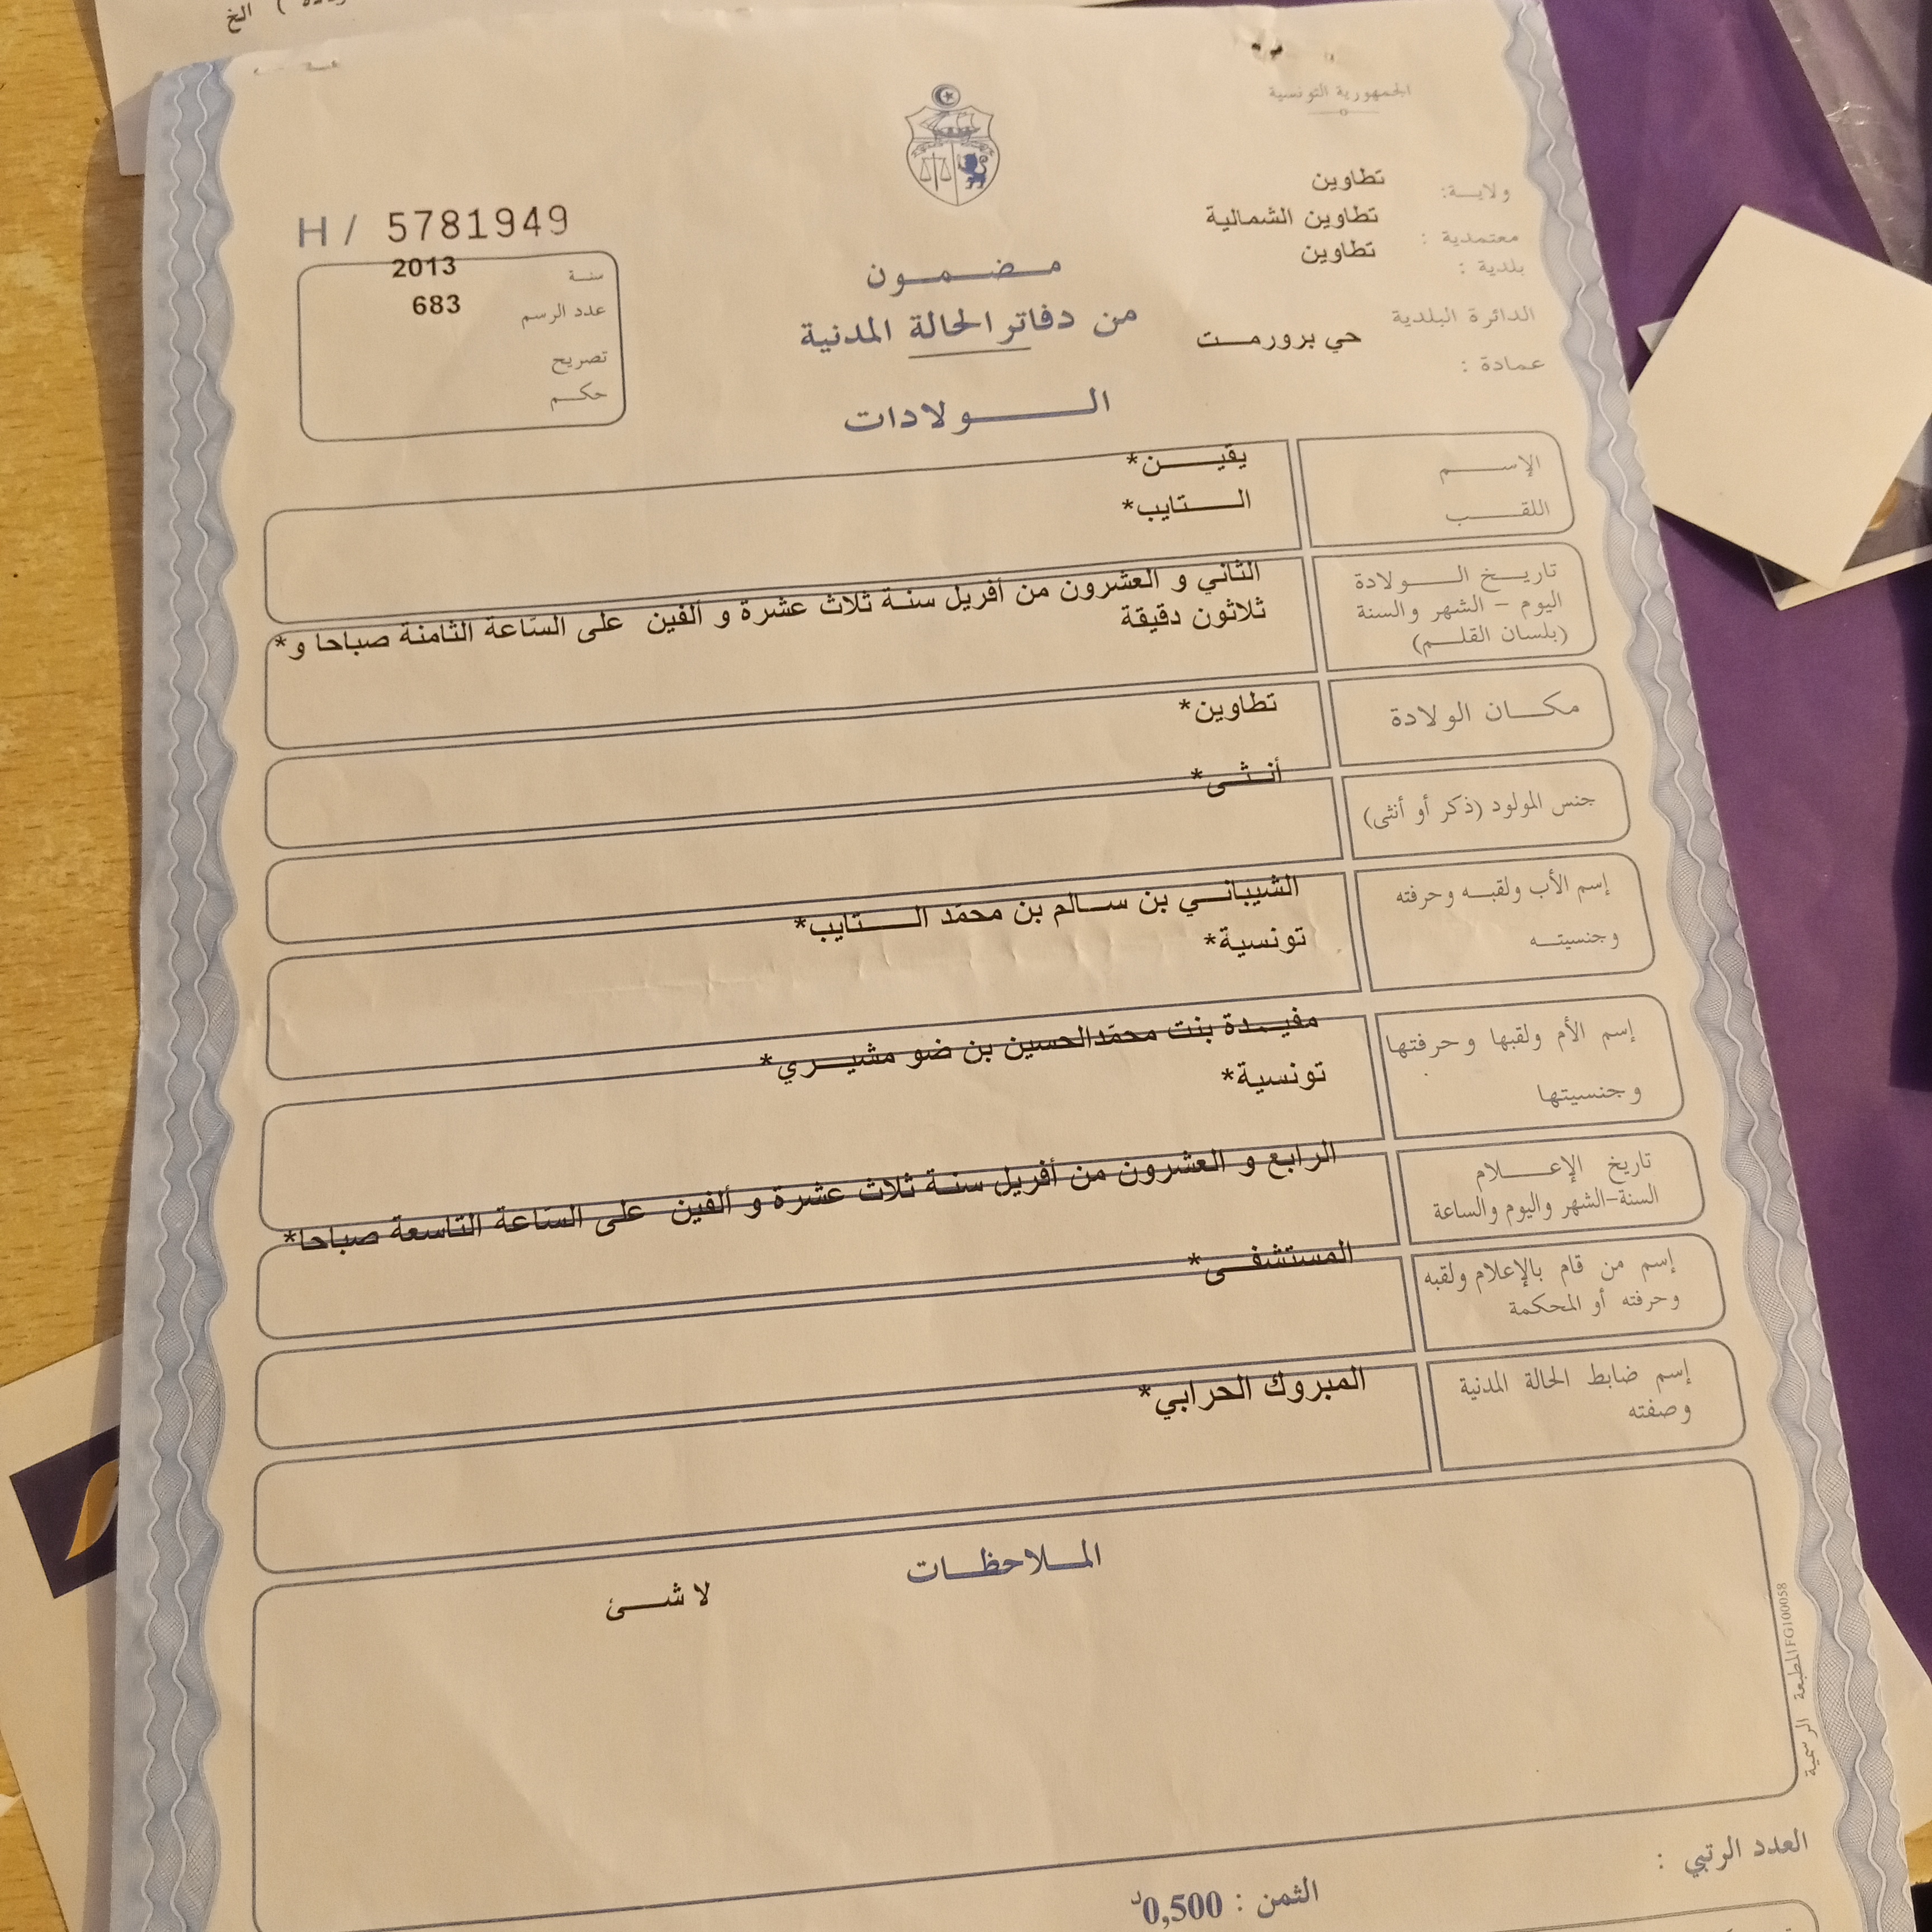 الخ
الجمهورية التونسية
ولايـــة: تطاوين
معتمدية : تطاوين الشمالية
بلدية : تطاوين
الدائرة البلدية
حي برورمــت
عمادة :
H / 5781949
سنة 2013
عدد الرسم 683
تصريح
حكــم
مــضــمــون
من دفاتر الحالة المدنية
الـــولادات
الإســـم يقيـــن*
اللقــب الـــتايب*
تاريــخ الـــولادة
اليوم - الشهر والسنة
(بلسان القلــم)
الثاني و العشرون من أفريل سنـة ثلاث عشرة و ألفين على الساعة الثامنة صباحا و*
ثلاثون دقيقة
مكــان الولادة تطاوين*
جنس المولود (ذكر أو أنثى) أنــثــى*
إسم الأب ولقبــه وحرفته
وجنسيتــه
الشيبانــي بن ســالم بن محمّد الـــتايب*
تونسية*
إسم الأم ولقبها وحرفتها
وجنسيتها
مفيــدة بنت محمّدالحسين بن ضو مشيــري*
تونسية*
تاريخ الإعـــلام
السنة-الشهر واليوم والساعة
الرابع و العشرون من أفريل سنـة ثلاث عشرة و ألفين على الساعة التاسعة صباحا*
إسم من قام بالإعلام ولقبه
وحرفته أو المحكمة
المستشفــى*
إسم ضابط الحالة المدنية
وصفته
المبروك الحرابي*
المــلاحظــات
لا شــئ
المطبعة الرسمية FG100058
العدد الرتبي :
الثمن : 0,500د